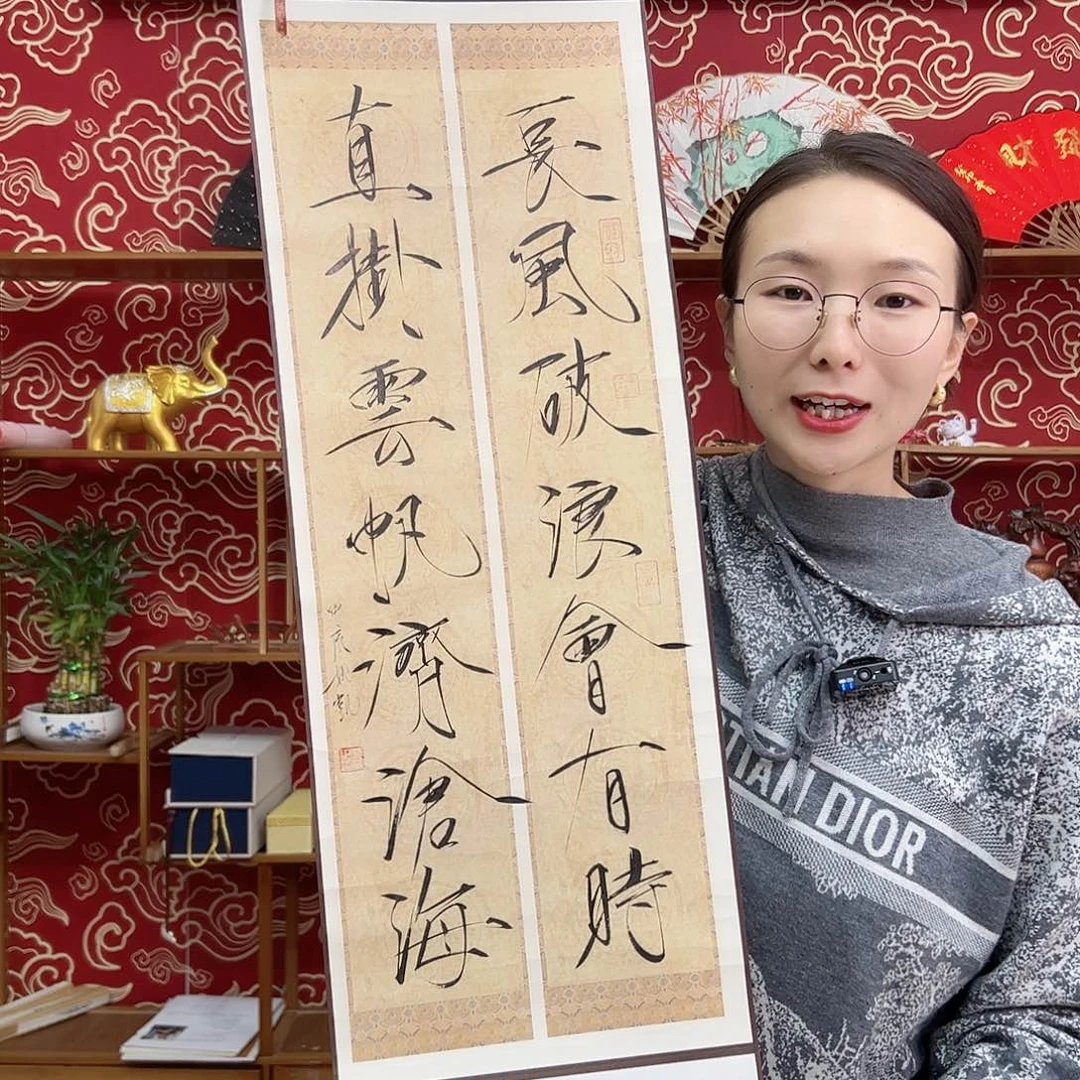 長風破浪會有時
直掛雲帆濟滄海
發財
TIAN DIOR